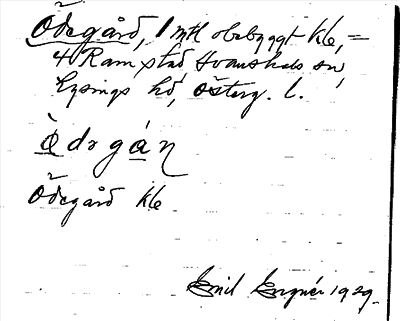 Ödegård, 1 mtl obebyggt kle, =
4 Ramstad Hvanstads sn,
Lysings hd, Österg. l.
Ödagán
Ödegård kle
Emil Enguér 1929.